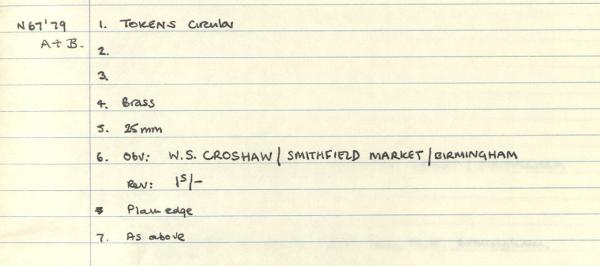 N67'79 1. TOKENS Circular
A + B. 2.
3.
4. Brass
5. 25mm
6. Obv: W.S. CROSHAW / SMITHFIELD MARKET / BIRMINGHAM
Rev: 1s/-
Plain edge
7. As above